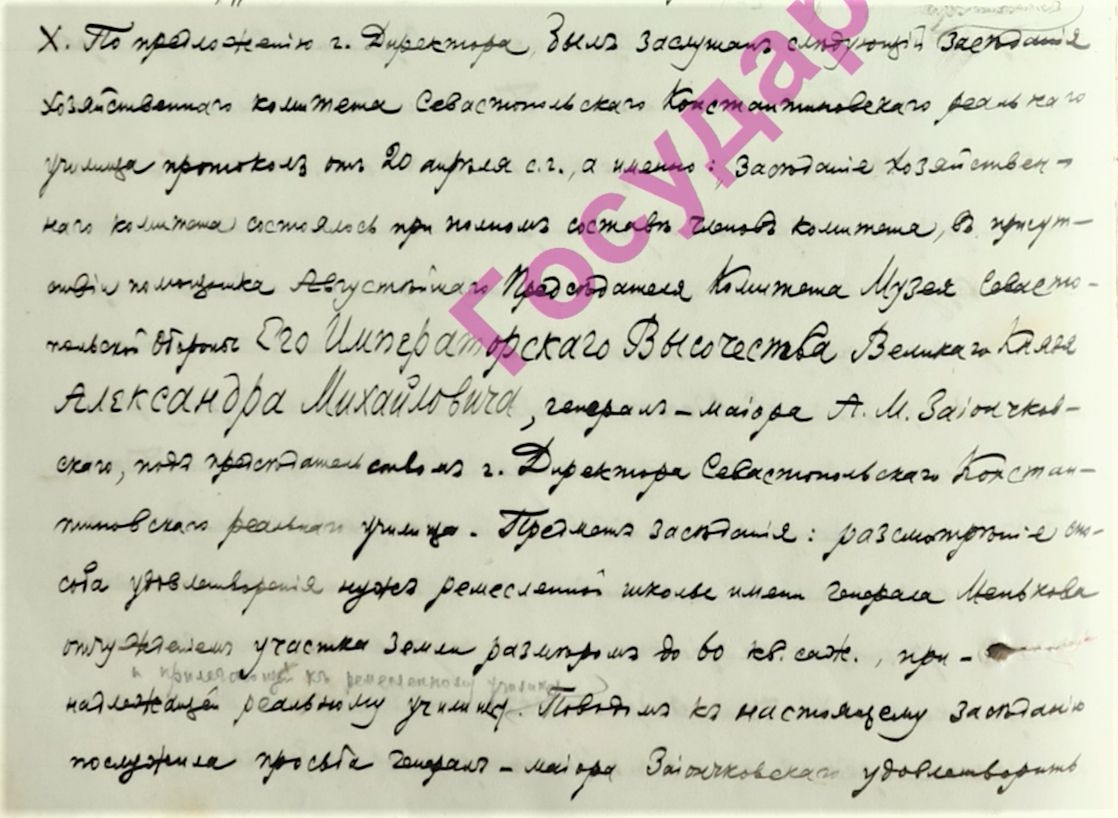 X. По предложенію г. Директора, былъ заслушанъ слѣдующій засѣданія
Хозяйственнаго комитета Севастопольскаго Константиновскаго реальнаго
училища протоколъ отъ 20 апрѣля с.г., а именно: „Засѣданіе Хозяйствен-
наго комитета состоялось при полномъ составѣ членовъ комитета, въ присут-
ствіи помощника Августѣйшаго Предсѣдателя Комитета Музея Севасто-
польской Обороны Его Императорскаго Высочества Великаго Князя
Александра Михайловича, генералъ-маіора А. М. Заіончков-
скаго, подъ предсѣдательствомъ г. Директора Севастопольскаго Констан-
тиновскаго реальнаго училища. Предметъ засѣданія: разсмотрѣніе спо-
соба удовлетворенія нуждъ ремесленной школы имени Генерала Менькова
отчужденіемъ участка земли размѣромъ до 60 кв. саж., при-
и прилегающей къ ремесленному училищу
надлежащей реальному училищу. Поводомъ къ настоящему засѣданію
послужила просьба Генералъ-маіора Заіончковскаго удовлетворить
Государ